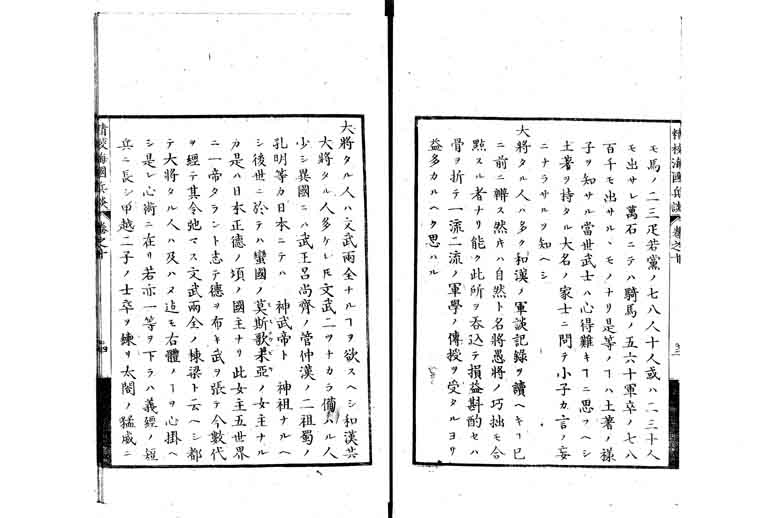 モ馬ノ二三疋若黨ノ七八人十人或ハ二三十人
モ出サレ萬石ニテハ騎馬ノ五六十軍卒ノ七八
百千モ出サルヽモノナリ是等ノヿハ土著ノ様
子ヲ知サル當世武士ハ心得難キヿニ思フヘシ
土著ヲ持タル大名ノ家士ニ問テ小子カ言ノ妄
ニナラサルヲ知ヘシ
大將タル人ハ多ク和漢ノ軍談記録ヲ讀ヘキヿ已
ニ前ニ辨ス然キハ自然ト名將愚將ノ巧拙モ合
點スル者ナリ能ク此所ヲ呑込テ損益斟酌セハ
骨ヲ折テ一流二流ノ軍學ノ傳授ヲ受タルヨリ
益多カルヘク思ハル
精校海國兵談 卷之十
大將タル人ハ文武兩全ナルヿヲ欲スヘシ和漢共
大將タル人多ケレ𪜈文武二ツナカラ備ハル人
少シ異國ニハ武王呂尚齊ノ管仲漢ノ二祖蜀ノ
孔明等カ日本ニテハ 神武帝ト 神祖ナルヘ
シ後世ニ於テハ蠻國ノ莫斯歌未亞ノ女主ナル
カ是ハ日本正德ノ頃ノ國主ナリ此女主五世界
ニ一帝タラント志テ德ヲ布キ武ヲ張テ今數代
ヲ經テ其令弛マス文武兩全ノ棟梁ト云ヘシ都
テ大將タル人ハ及ハメ迄モ右體ノヿヲ心掛ヘ
シ是レ心術ニ在リ若亦一等ヲ下ラハ義經ノ短
兵ニ長シ甲越二子ノ士卒ヲ練リ太閤ノ猛威ニ
精校海國兵談 卷之十